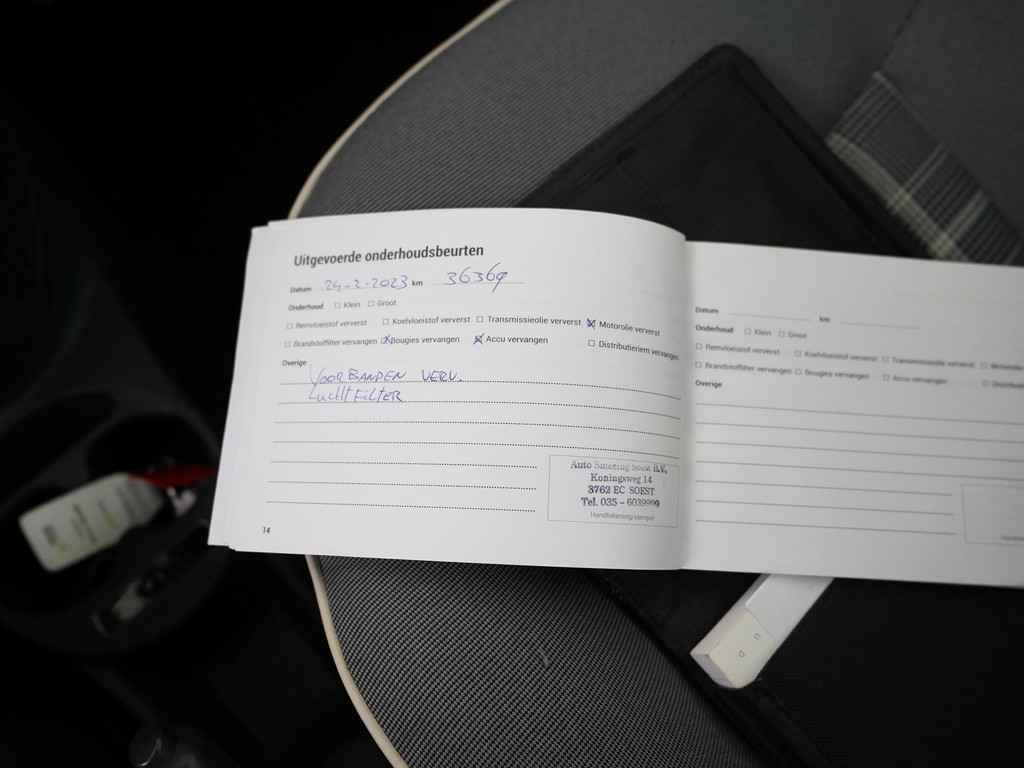 Uitgevoerde onderhoudsbeurten
Datum 24-2-2023 km 36369
Onderhoud □ Klein □ Groot
□ Remvloeistof ververst □ Koelvloeistof ververst □ Transmissieolie ververst ☒ Motorolie ververst
□ Brandstoffilter vervangen ☒ Bougies vervangen ☒ Accu vervangen □ Distributieriem vervangen
Overige
VOORBANDEN VERV.
LUCHTFILTER
Auto Soest B.V.
Koningsweg 14
3762 EC SOEST
Tel. 035 - 6039999
Handtekening/stempel
14
Datum km
Onderhoud □ Klein □ Groot
□ Remvloeistof ververst □ Koelvloeistof ververst □ Transmissieolie ververst □ Motorolie
□ Brandstoffilter vervangen □ Bougies vervangen □ Accu vervangen □
Overige